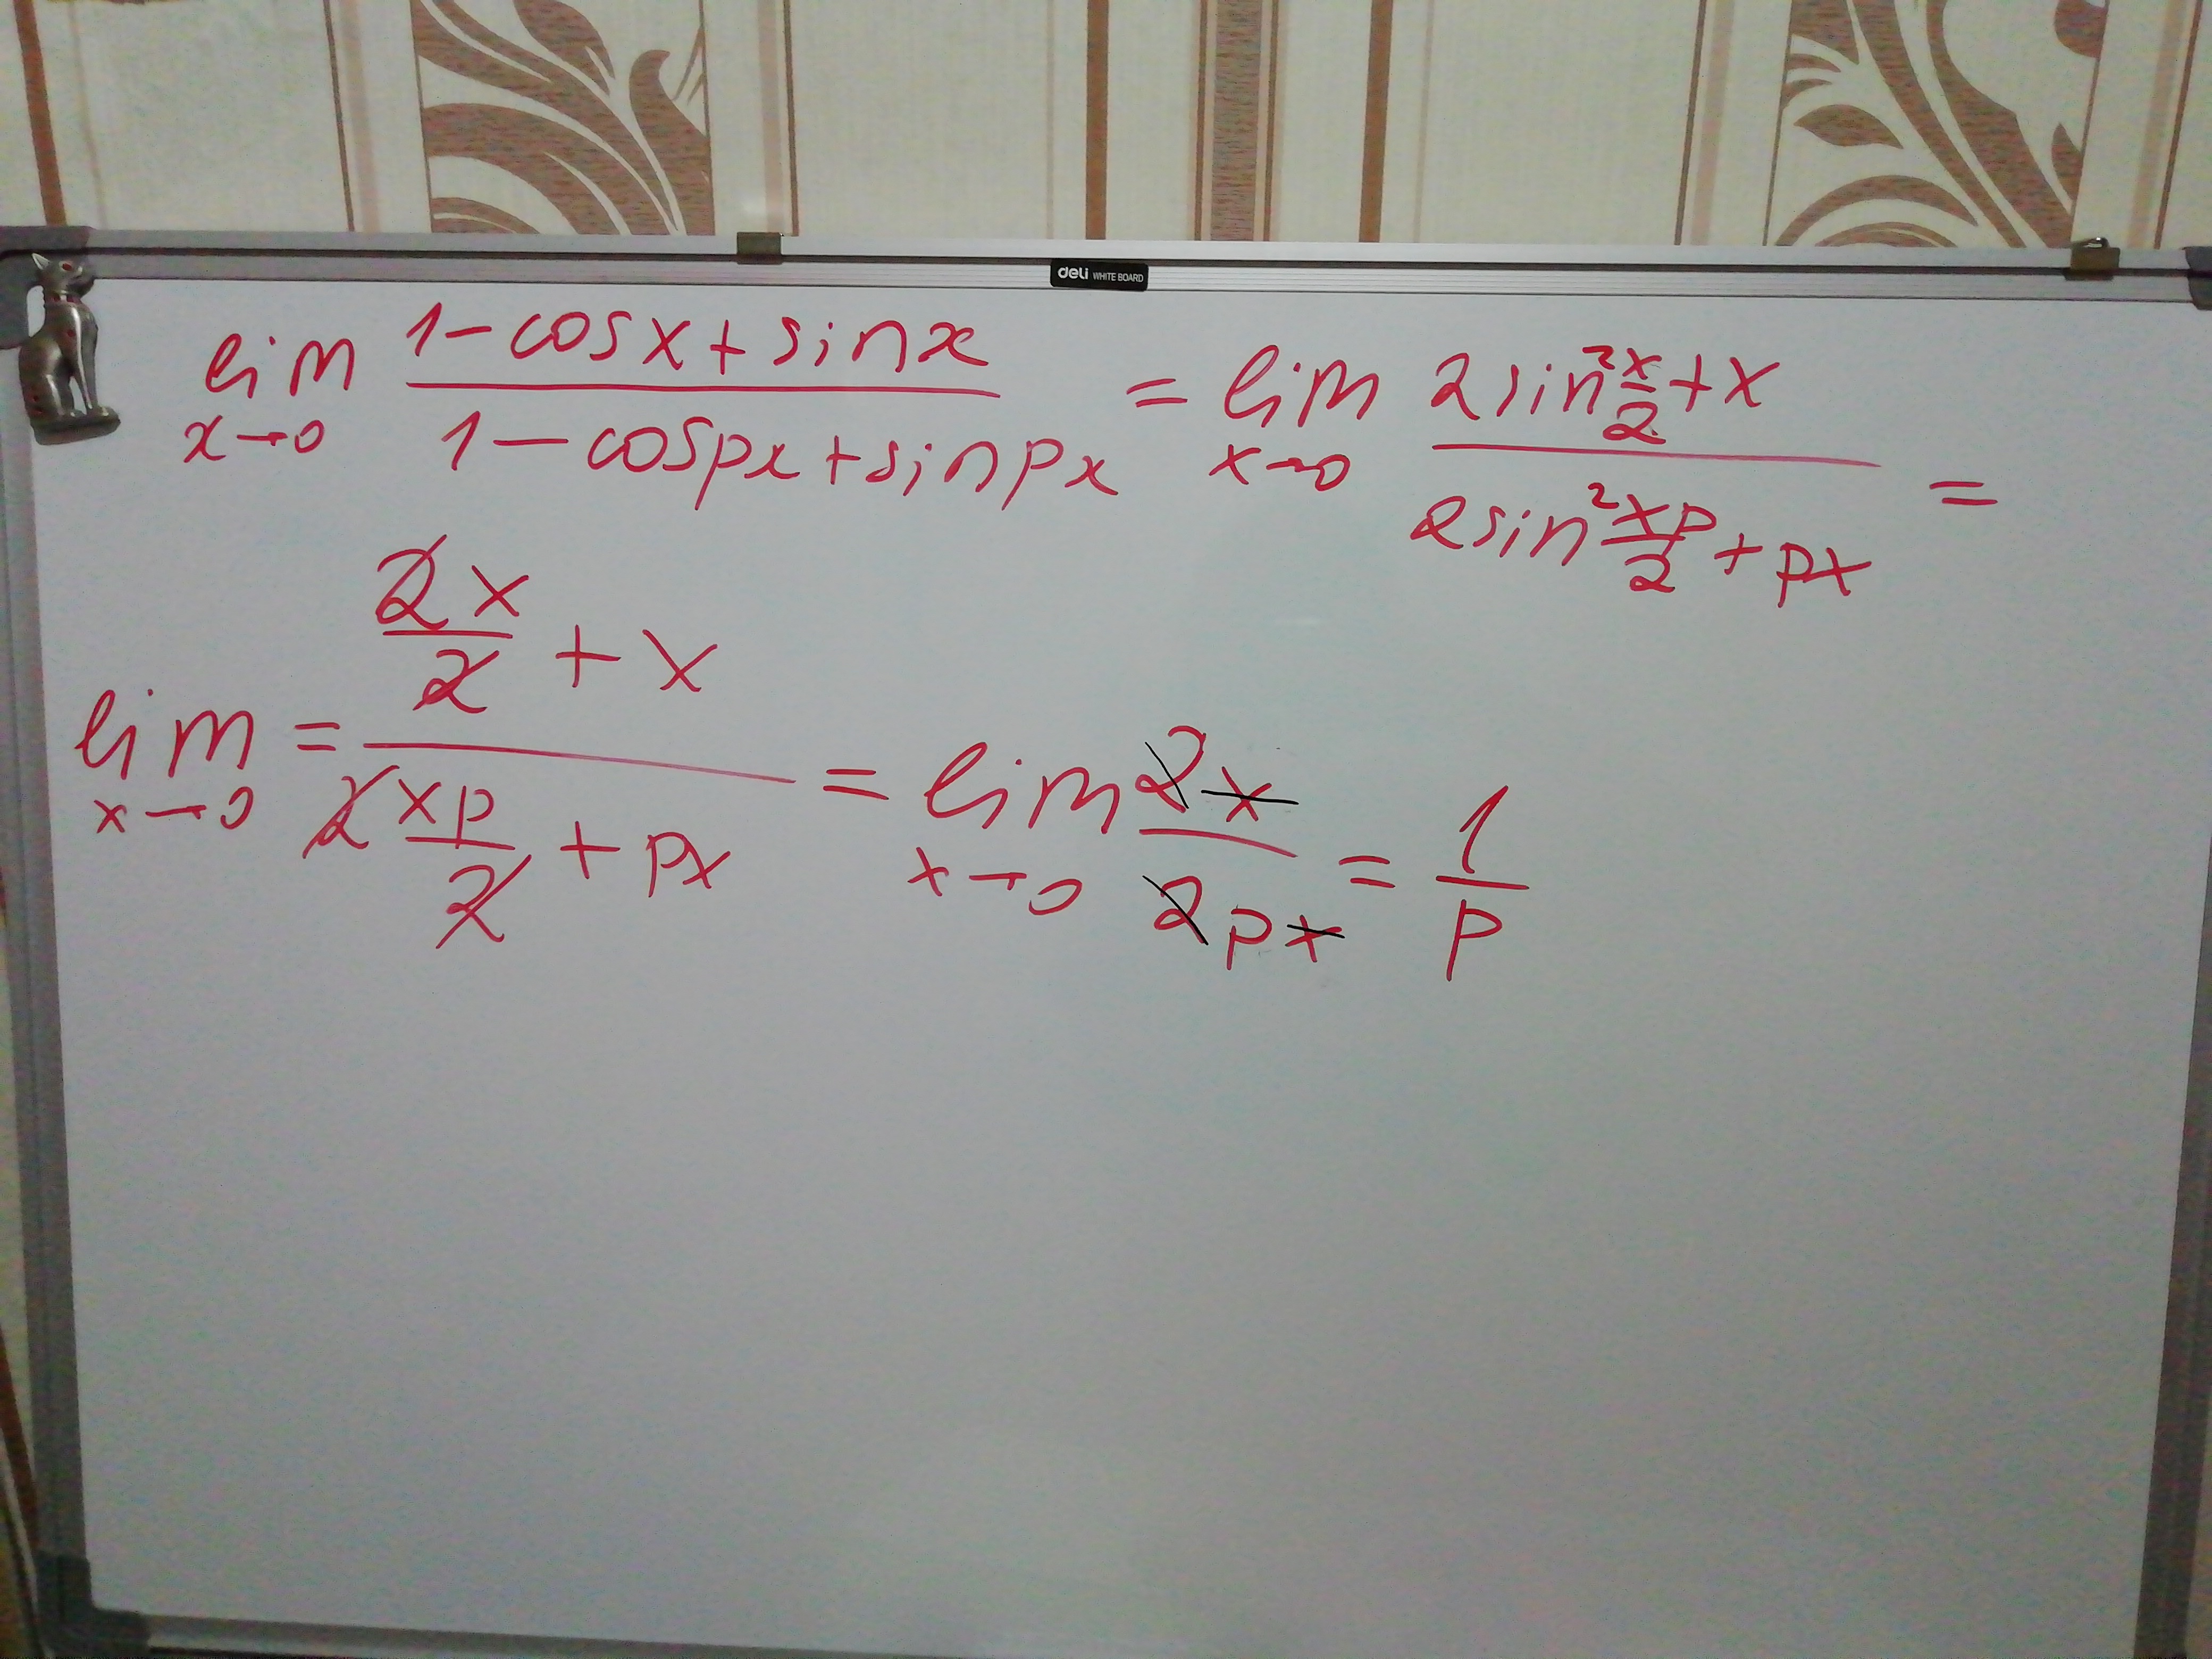 deli WHITE BOARD
lim x→0 (1-cosx+sinx)/(1-cospx+sinpx) = lim x→0 (2sin²x/2+x)/(2sin²xp/2+px) =
lim x→0 = (2x/2+x)/(2xp/2+px) = lim x→0 2x/2px = 1/p